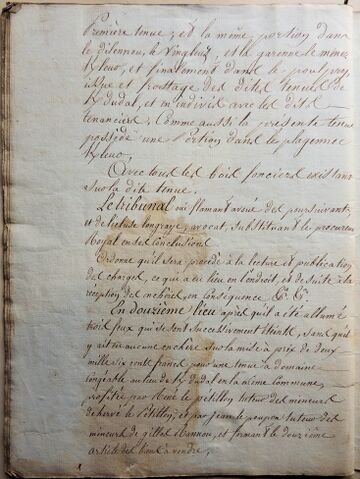 première tenue, et la même portion dans
le dilennou, le vingleuz, et la garenne le menez
Kleuo, et finalement dans le poul pry
issue et frostage des dites tenues de
Kdudal, et en indivis avec les dits
tenanciers, Comme aussi la présente tenue
possède une portion dans le placenne
Kleuo,
Avec tous les bois fonciers existans
Sur la dite tenue.
Le tribunal oui flamant avoué des poursuivants
et de lecluse longraye, avocat, substituant le procureur
Royal en ses conclusions
Ordonne qu'il sera procédé à la lecture et publication
des charges, ce qui a eu lieu en l'endroit, et de suite à la
réception des enchères, en conséquence
En douzième lieu après qu'il a été allumé
trois feux qui se sont successivement éteints, sans qu'il
y ait eu aucune enchère sur la mise à prix de deux
mille six cents francs pour une tenue à domaine
congéable au lieu de Kdudal en la même commune,
profitée par René le pétillon tuteur des mineurs
de hervé le Pétillon, et par jean le poupon tuteur des
mineurs de gilles Bannou, et formant le douzième
article des biens à vendre,